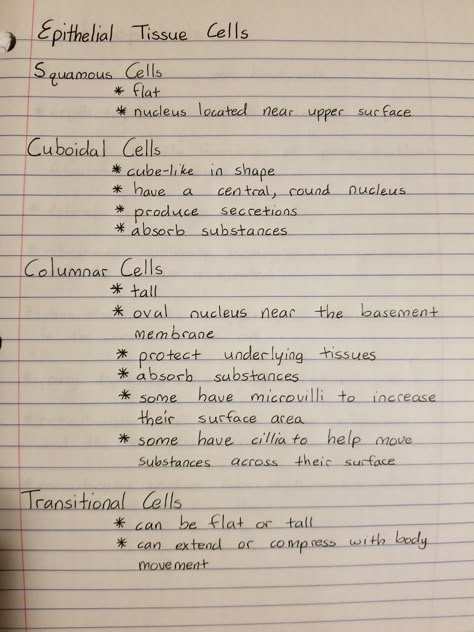 Epithelial Tissue Cells
Squamous Cells
* flat
* nucleus located near upper surface
Cuboidal Cells
* cube-like in shape
* have a central, round nucleus
* produce secretions
* absorb substances
Columnar Cells
* tall
* oval nucleus near the basement
membrane
* protect underlying tissues
* absorb substances
* some have microvilli to increase
their surface area
* some have cillia to help move
substances across their surface
Transitional Cells
* can be flat or tall
* can extend or compress with body
movement